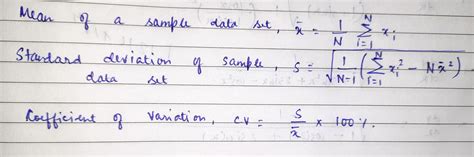 Mean of a sample data set, x̄ = 1/N Σ_{i=1}^{N} x_i
Standard deviation of sample, s = √(1/(N-1) (Σ_{i=1}^{N} x_i² − N x̄²))
data set
Coefficient of variation, CV = s/x̄ × 100%.